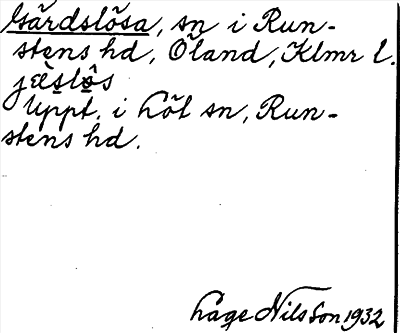 Gärdslösa, sn i Run-
stens hd, Öland, Klmr l.
jæ̀slô̱s
Uppt. i Löt sn, Run-
stens hd.
Lage Nilsson 1932